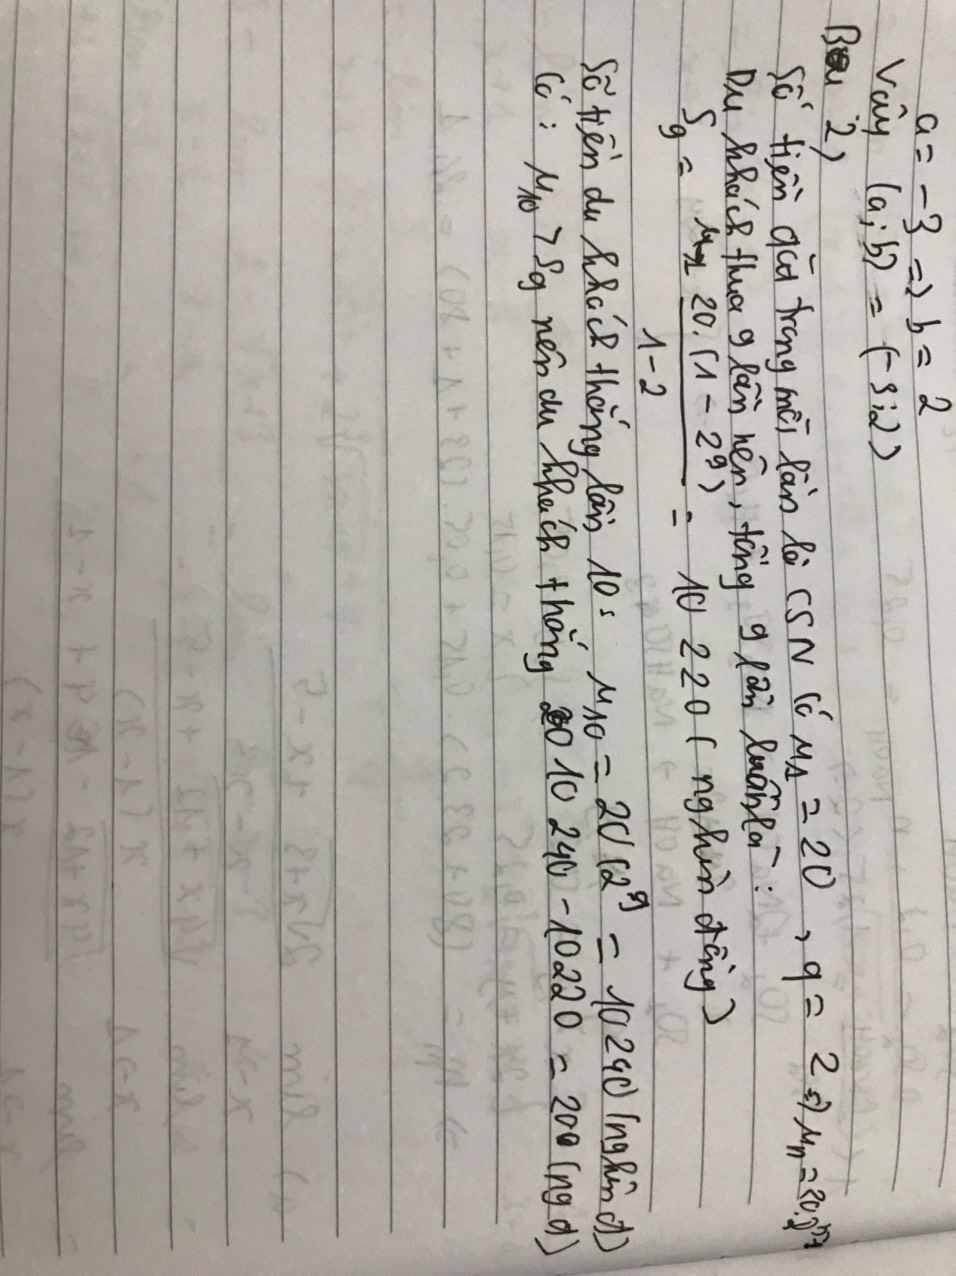 a = -3 => b = 2
Vậy (a; b) = (-3; 2)
Bài 2)
Số tiền qua trong mỗi lần là CSN có u₁ = 20, q = 2 => uₙ = 20.2ⁿ⁻¹
Du khách thua 9 lần nên, tổng 9 lần là:
S₉ = 20.(1 - 2⁹) / 1-2 = 10 220 (nghìn đồng)
Số tiền du khách thắng lần 10: u₁₀ = 20.(2⁹ = 10240 (nghìn đ)
Có: u₁₀ > S₉ nên du khách thắng 10 240 - 10220 = 200 (ng đ)